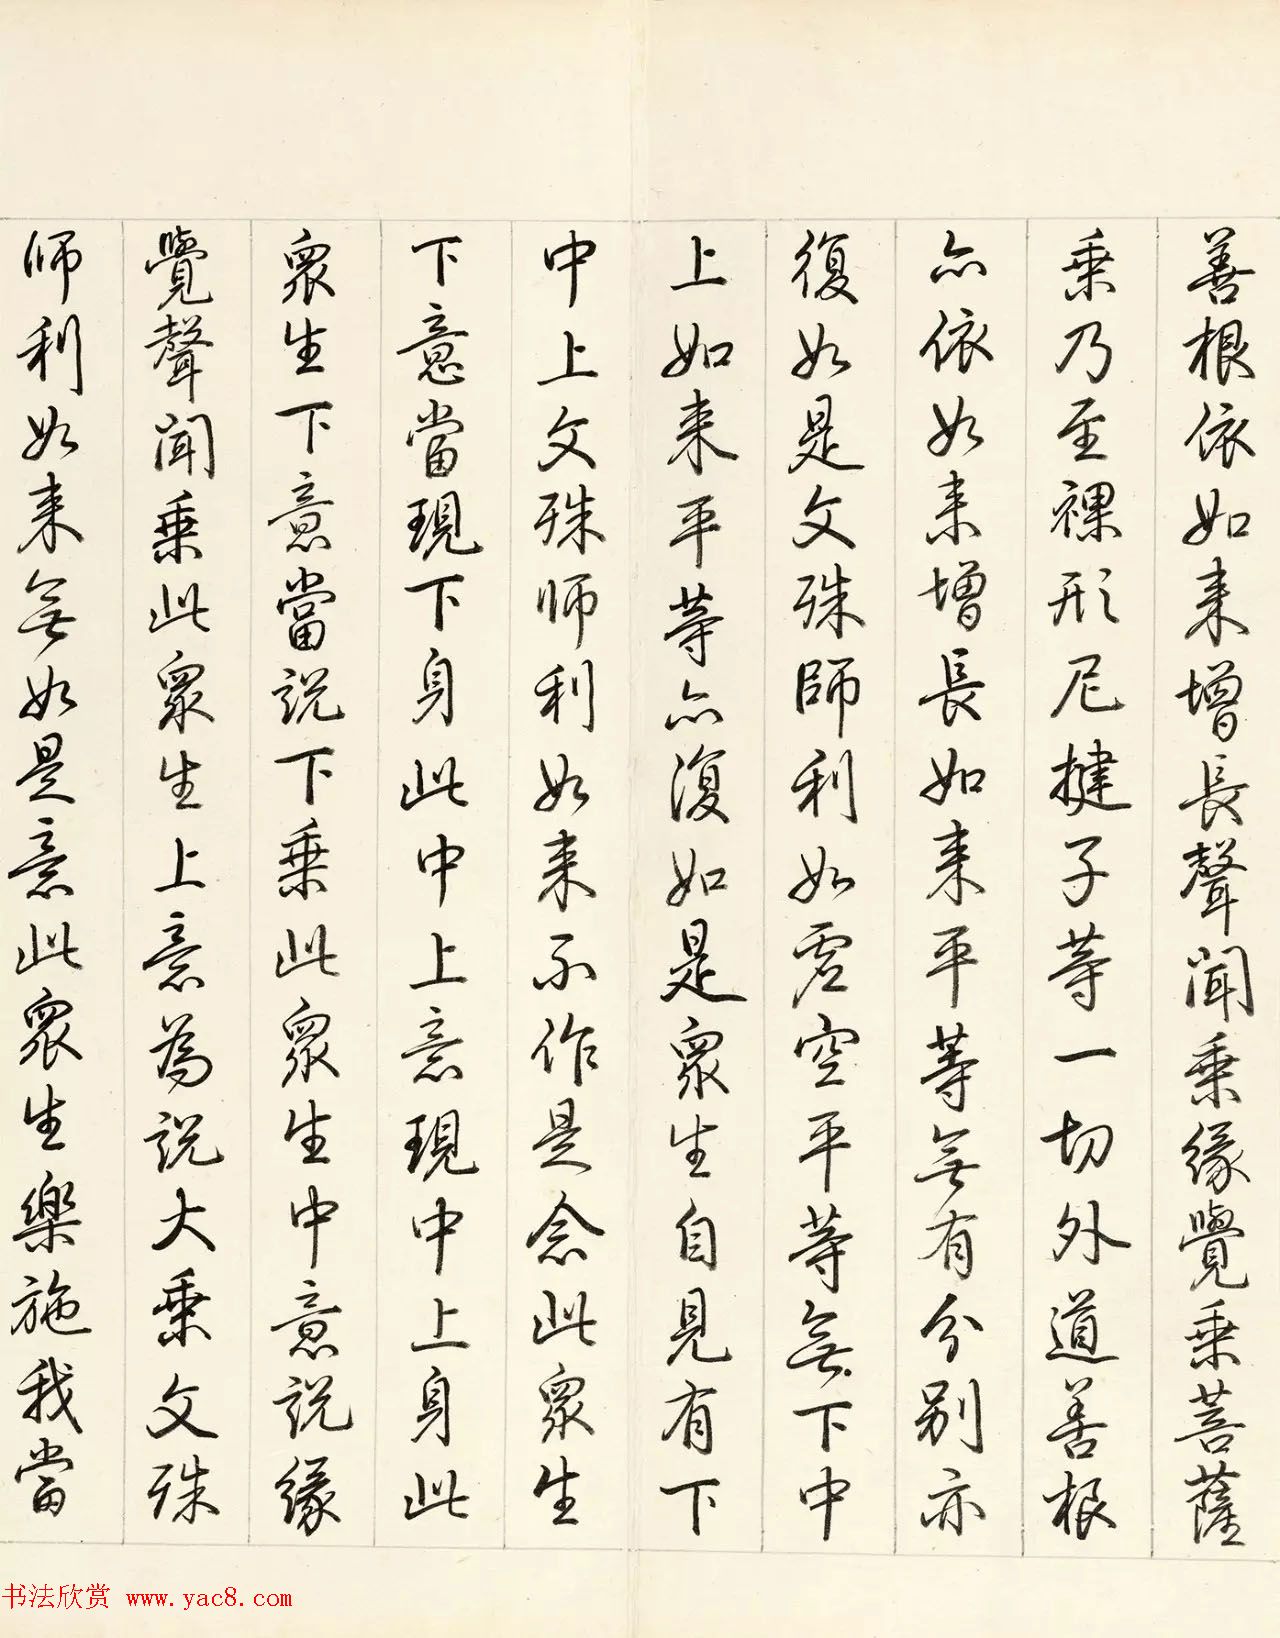 善根依如来增長聲聞乗緣覺乗菩薩
乗乃至裸形尼揵子等一切外道善根
亦依如来增長如来平等無有分别亦
復如是文殊師利如虚空平等無下中
上如来平等亦復如是衆生自見有下
中上文殊师利如来不作是念此衆生
下意當現下身此中上意現中上身此
衆生下意當説下乗此衆生中意説緣
覺聲聞乗此衆生上意為説大乗文殊
师利如来無如是意此衆生樂施我當
书法欣赏 www.yac8.com